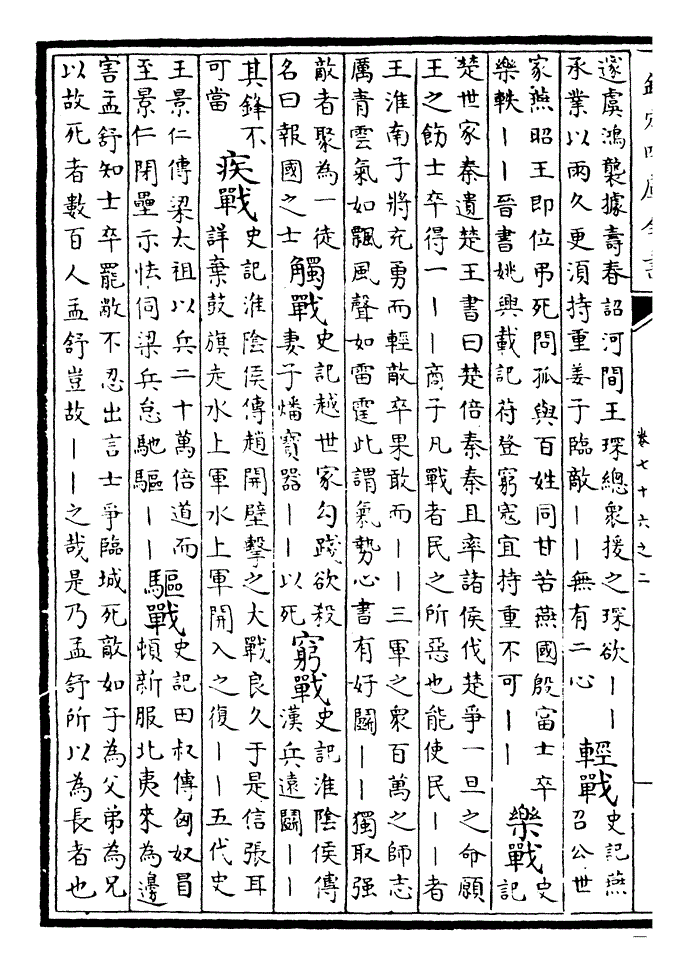 欽定四庫全書
卷七十六之二
邃虞鴻襲據壽春詔河間王琛總衆援之琛欲丨丨
承業以兩久更須持重姜子臨敵丨丨無有二心
輕戰
史記燕
召公世
家燕昭王即位弔死問孤與百姓同甘苦燕國殷富士卒
樂軼丨丨晉書姚興載記苻登窮寇宜持重不可丨丨
樂戰
史
記
楚世家秦遺楚王書曰楚倍秦秦且率諸侯伐楚爭一旦之命願
王之飭士卒得一丨丨商子凡戰者民之所惡也能使民丨丨者
王淮南子將充勇而輕敵卒果敢而丨丨三軍之衆百萬之師志
厲青雲氣如飄風聲如雷霆此謂氣勢心書有好鬭丨丨獨取强
敵者聚為一徒
名曰報國之士
觸戰
史記越世家勾踐欲殺
妻子燔寶器丨丨以死
窮戰
史記淮陰侯傳
漢兵遠鬭丨丨
其鋒不
可當
疾戰
史記淮陰侯傳趙開壁擊之大戰良久于是信張耳
詳棄鼓旗走水上軍水上軍開入之復丨丨五代史
王景仁傳梁太祖以兵二十萬倍道而
至景仁閉壘示怯伺梁兵怠馳驅丨丨
驅戰
史記田叔傳匈奴冒
頓新服北夷來為邊
害孟舒知士卒罷敝不忍出言士爭臨城死敵如子為父弟為兄
以故死者數百人孟舒豈故丨丨之哉是乃孟舒所以為長者也